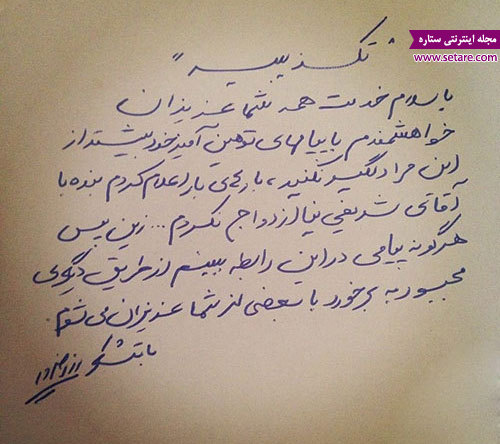 مجله اینترنتی ستاره
www.setare.com
" تکذیبیه "
با سلام خدمت همه شما عزیزان
خواهشمندم با پیامهای توهین آمیز خود بیشتر از
این مرا دلگیر نکنید، بارها اعلام کردم بنده با
آقای شریفی نیا ازدواج نکردم ... زین پس
هرگونه پیامی در این رابطه ببینم از طریق دیگری
مجبور به برخورد با بعضی از شما عزیزان می شوم.
با تشکر